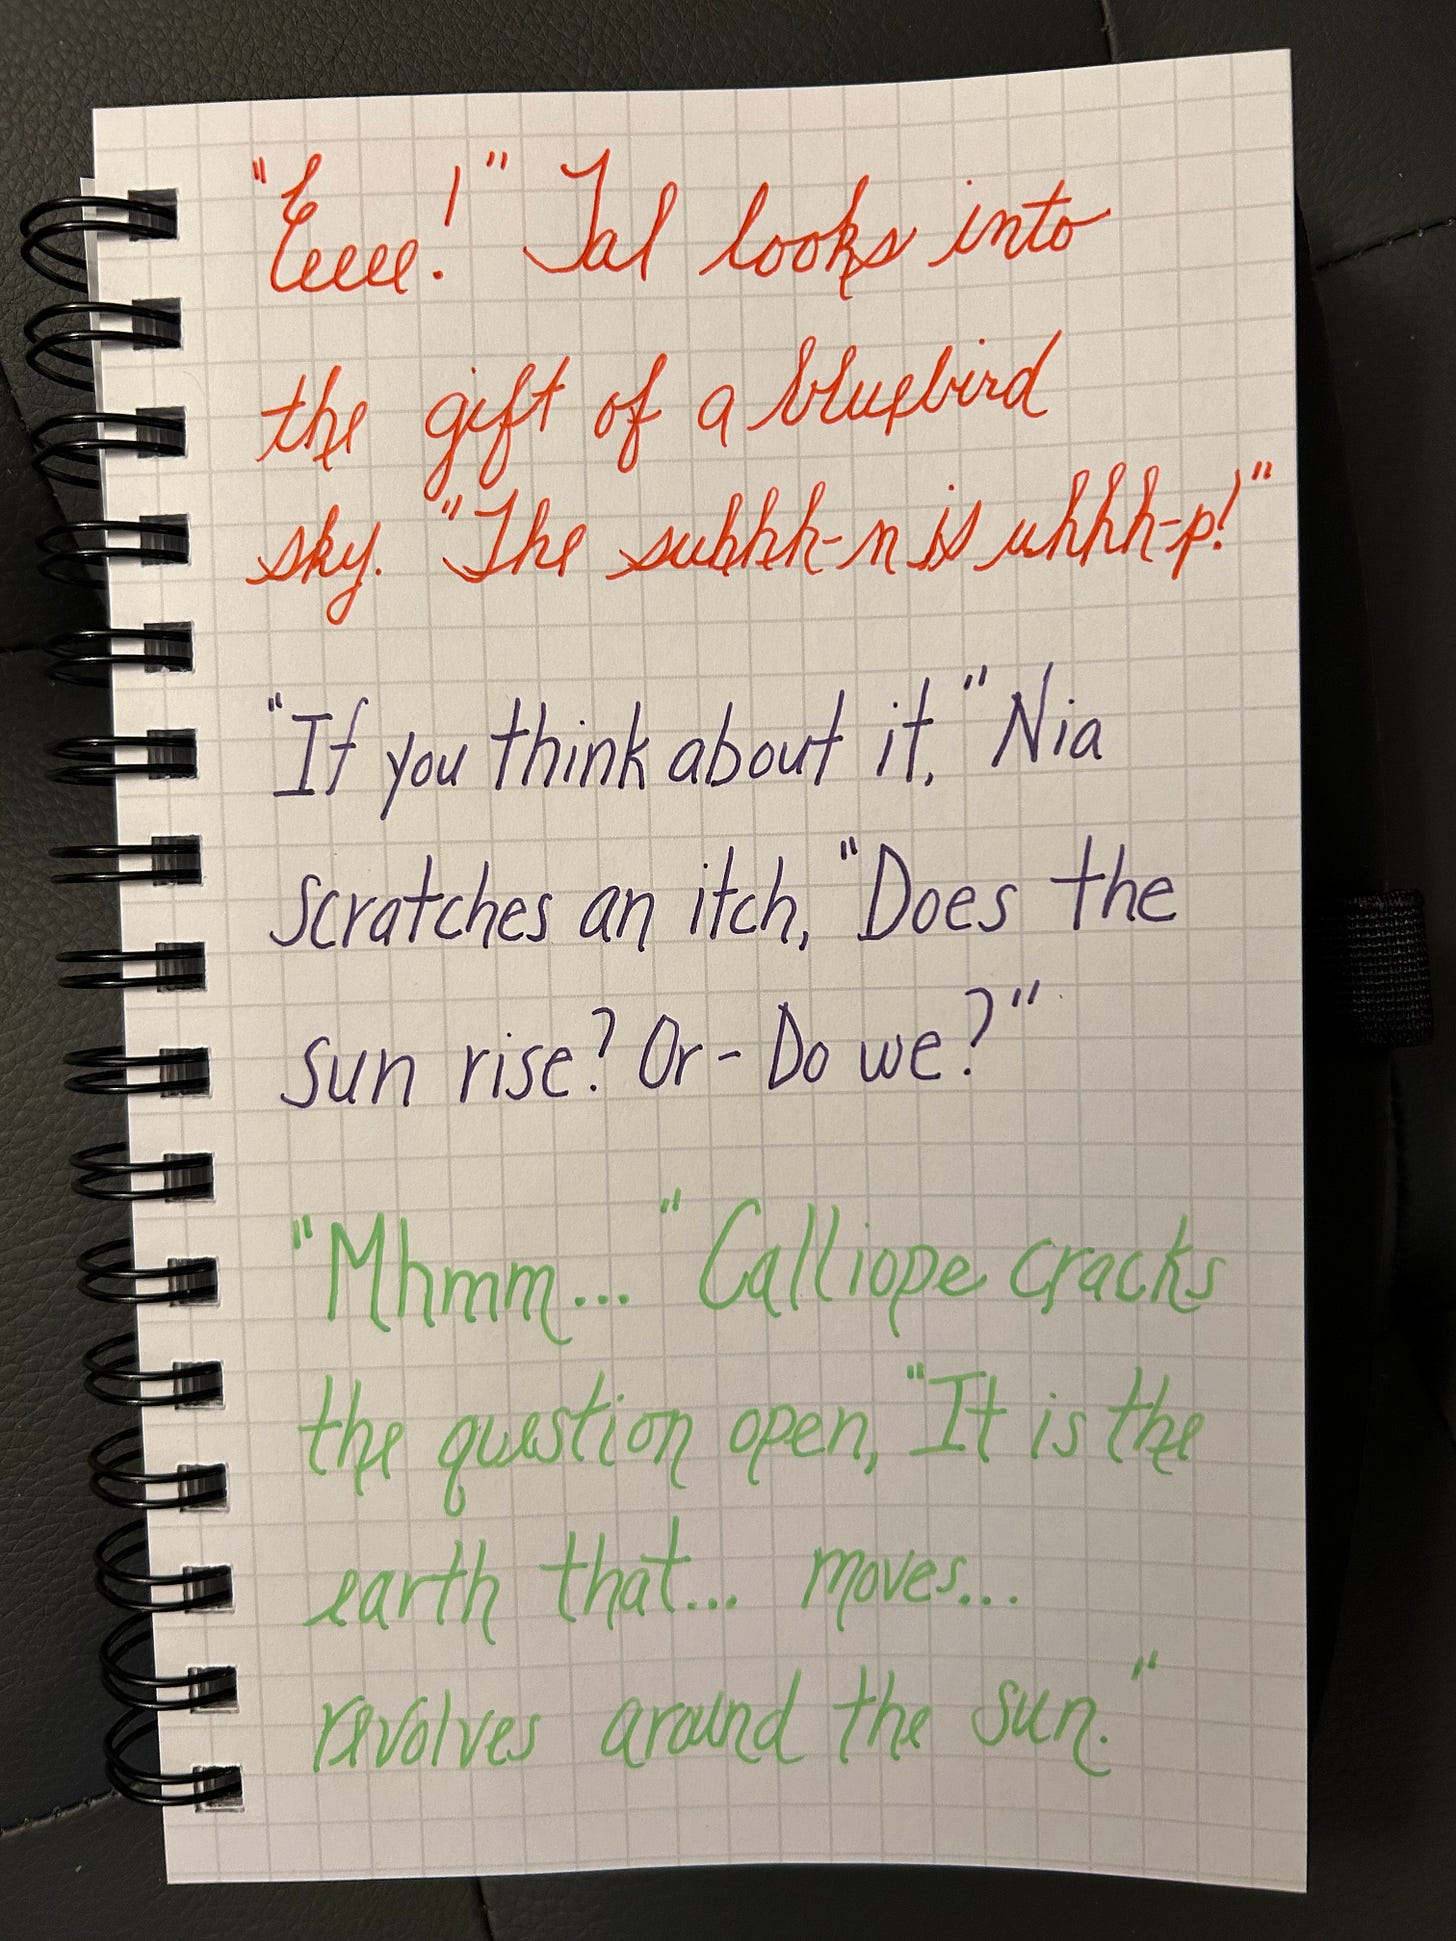 "Eeeee!" Tal looks into
the gift of a bluebird
sky. "The suhhh-n is uhhh-p!"
"If you think about it," Nia
scratches an itch, "Does the
sun rise? Or - Do we?"
"Mhmm..." Calliope cracks
the question open, "It is the
earth that... moves...
revolves around the sun."